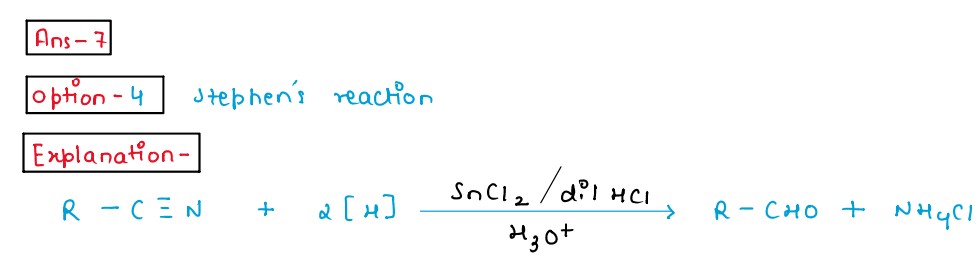 Ans-7
Option-4 Stephen's reaction
Explanation-
R - C ≡ N + 2[H] SnCl2/dil HCl H3O+ → R - CHO + NH4Cl